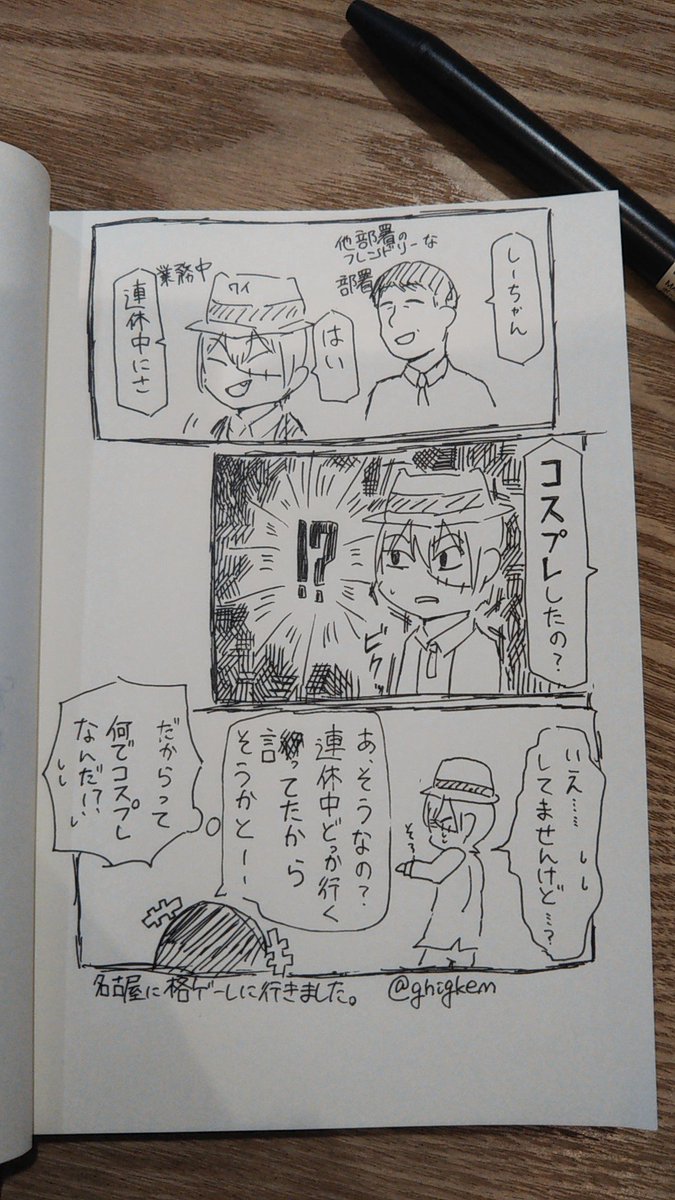 しーちゃん
他部署の
フレンドリーな
部署
はい
ワイ
業務中
連休中にさ
コスプレしたの?
!?
ビク
いえ……
してませんけど…?
あ、そうなの?
連休中どっか行く
言ってたから
そうかとーー
だからって
何でコスプレ
なんだ!?
名古屋に格ゲーしに行きました。
@ghigkem